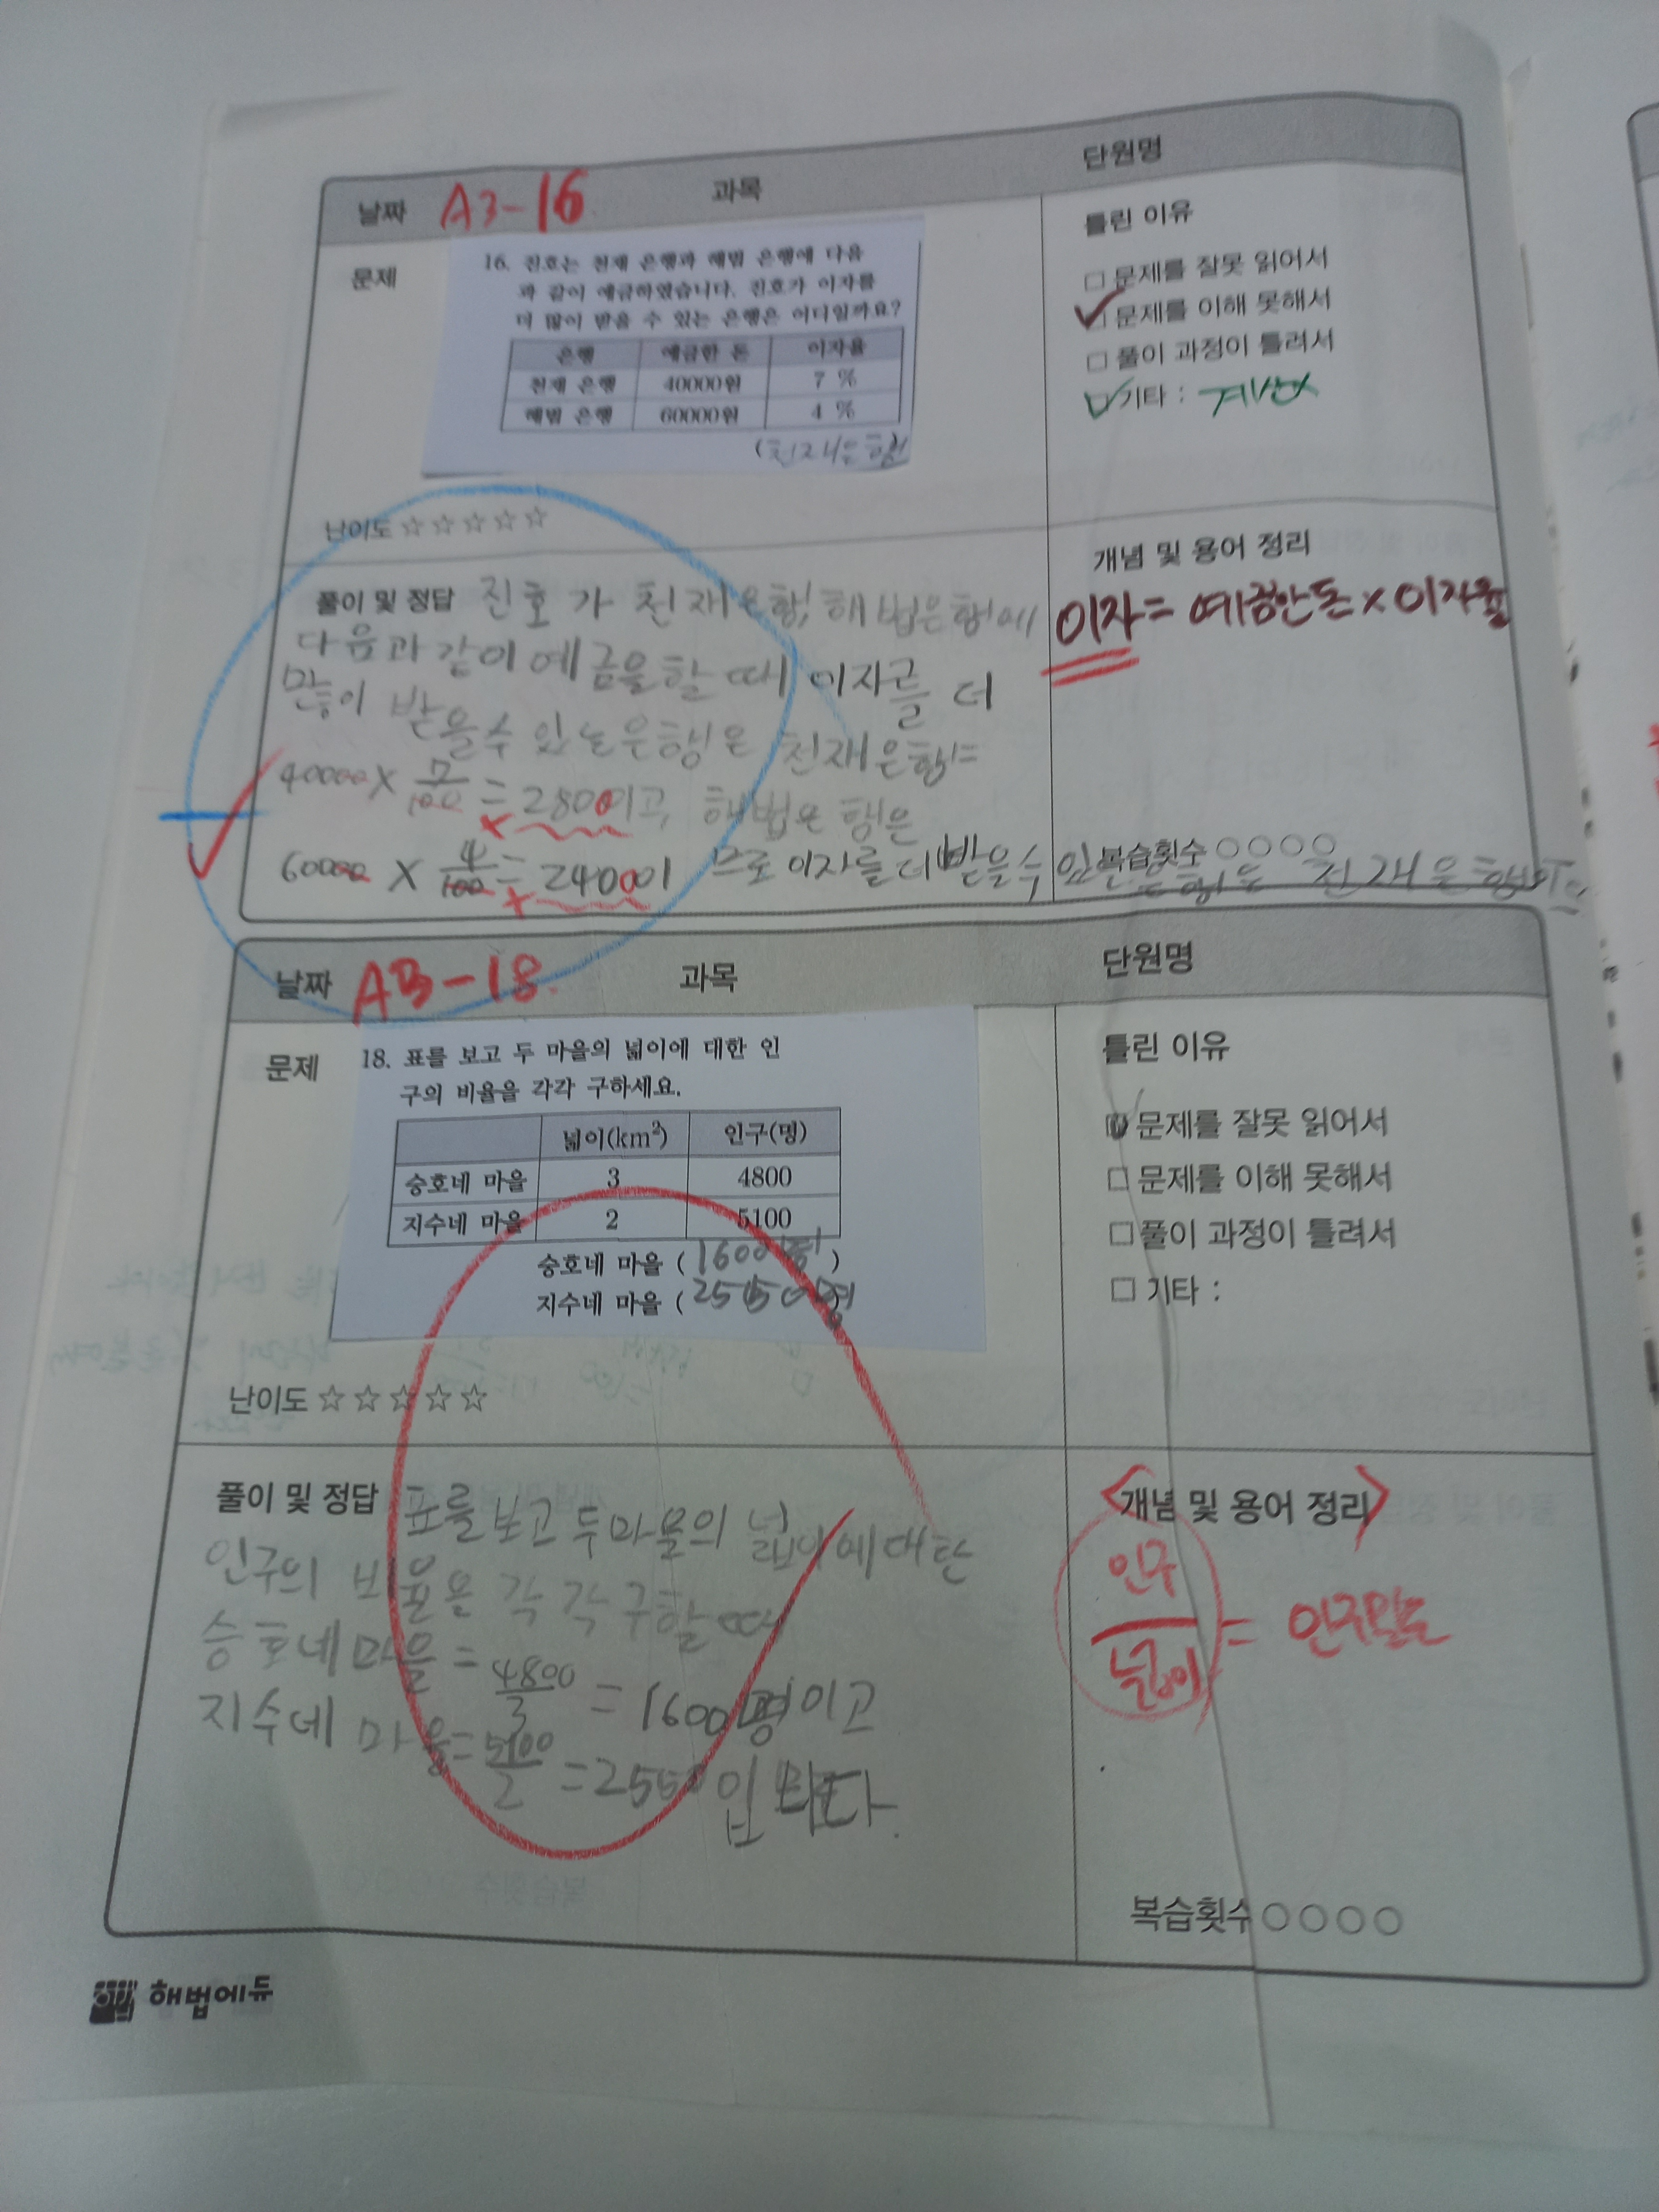 날짜 A3-16 과목 단원명
문제
16. 진호는 천재 은행과 해법 은행에 다음
과 같이 예금하였습니다. 진호가 이자를
더 많이 받을 수 있는 은행은 어디일까요?
은행 예금한 돈 이자율
천재 은행 40000원 7 %
해법 은행 60000원 4 %
(천재은행
난이도 ☆☆☆☆☆
틀린 이유
□ 문제를 잘못 읽어서
✓ 문제를 이해 못해서
□ 풀이 과정이 틀려서
✓ 기타 : 계산
풀이 및 정답 진호가 천재은행, 해법은행에
다음과 같이 예금을 할 때 이자를 더
많이 받을수 있는 은행은 천재은행는
40000 × 7/100 = 2800이고, 해법은행은
60000 × 4/100 = 2400이 므로 이자를 더 받을수 있는 은행은 천재은행
개념 및 용어 정리
이자 = 예금한돈 × 이자율
복습횟수 ○○○○
날짜 A3-18. 과목 단원명
문제
18. 표를 보고 두 마을의 넓이에 대한 인
구의 비율을 각각 구하세요.
넓이(km²) 인구(명)
승호네 마을 3 4800
지수네 마을 2 5100
승호네 마을 ( 1600명 )
지수네 마을 (
난이도 ☆☆☆☆☆
틀린 이유
문제를 잘못 읽어서
□ 문제를 이해 못해서
□ 풀이 과정이 틀려서
□ 기타 :
풀이 및 정답 표를 보고 두 마을의 넓이에 대한
인구의 비율을 각각 구할 때
승호네 마을 = 4800/3 = 1600명이고
지수네 마을 = 5100/2 = 2550입니다.
<개념 및 용어 정리>
인구/넓이 = 인구밀도
복습횟수 ○○○○
해법에듀